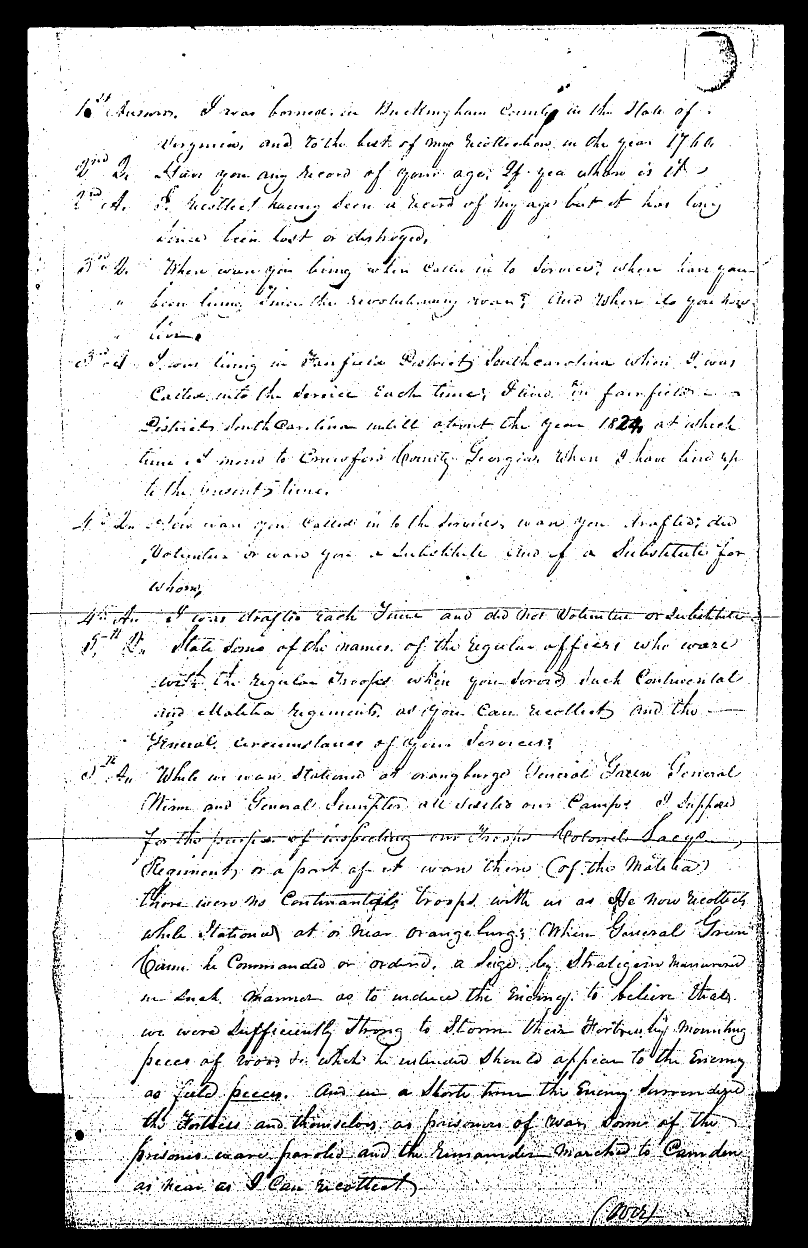 1st Answer. I was borned in Buckingham County in the State of
Virginia, and to the best of my recollection in the year 1760
2nd Q. Have you any record of your age; If yea where is it
2nd A. I recollect having seen a record of my age but it has long
since been lost or distroyed,
3rd Q. Where ware you living when called in to Service; where have you
" been living since the revolutionary war; And where do you now
" live.
3rd A I was living in Fairfield District South carolina when I was
Called into the Service Each time; I live in fairfield
District South Carolina untill about the year 1824, at which
time I move to Crawford County Georgia, where I have lived up
to the present time.
4th Qn How ware you Called in to the Service, ware you drafted; did
Volunteer or ware you a Substitute and if a Substitute for
whom,
4th An I was drafted each Time and did not Volunteer or Substitute
5th Qn State some of the names of the regular officers who ware
with the regular Troops when you Served Such Continental
and Malitia Regiments, as you Can recollect and the
General, circumstance of your Services;
5th An While we ware Stationed at orangburge General Green General
and General Sumpter all visited our Camps I Suppose
for the purpose of inspecting our Troops Colonel Lacys
Regiment, or a part of it ware there (of the Malitia)
there were no troops with us as He now recollects
while Stationed at or near orangeburg; When General Green
Came he Commanded or ordered, a Seige by Stratigim
in Such manner as to induce the Enemy to believe that
we were Sufficiently Strong to Storm their Fortress, by mounting
peces of wood &c which he intended Should appear to the Enemy
as field peces. And in a Shorte time the Enemy Surrendered
the Fortress and themselves, as prisoners of war, Some of the
prisones ware paroled and the Remainder Marched to Camden
as near as I Can recollect
(over)